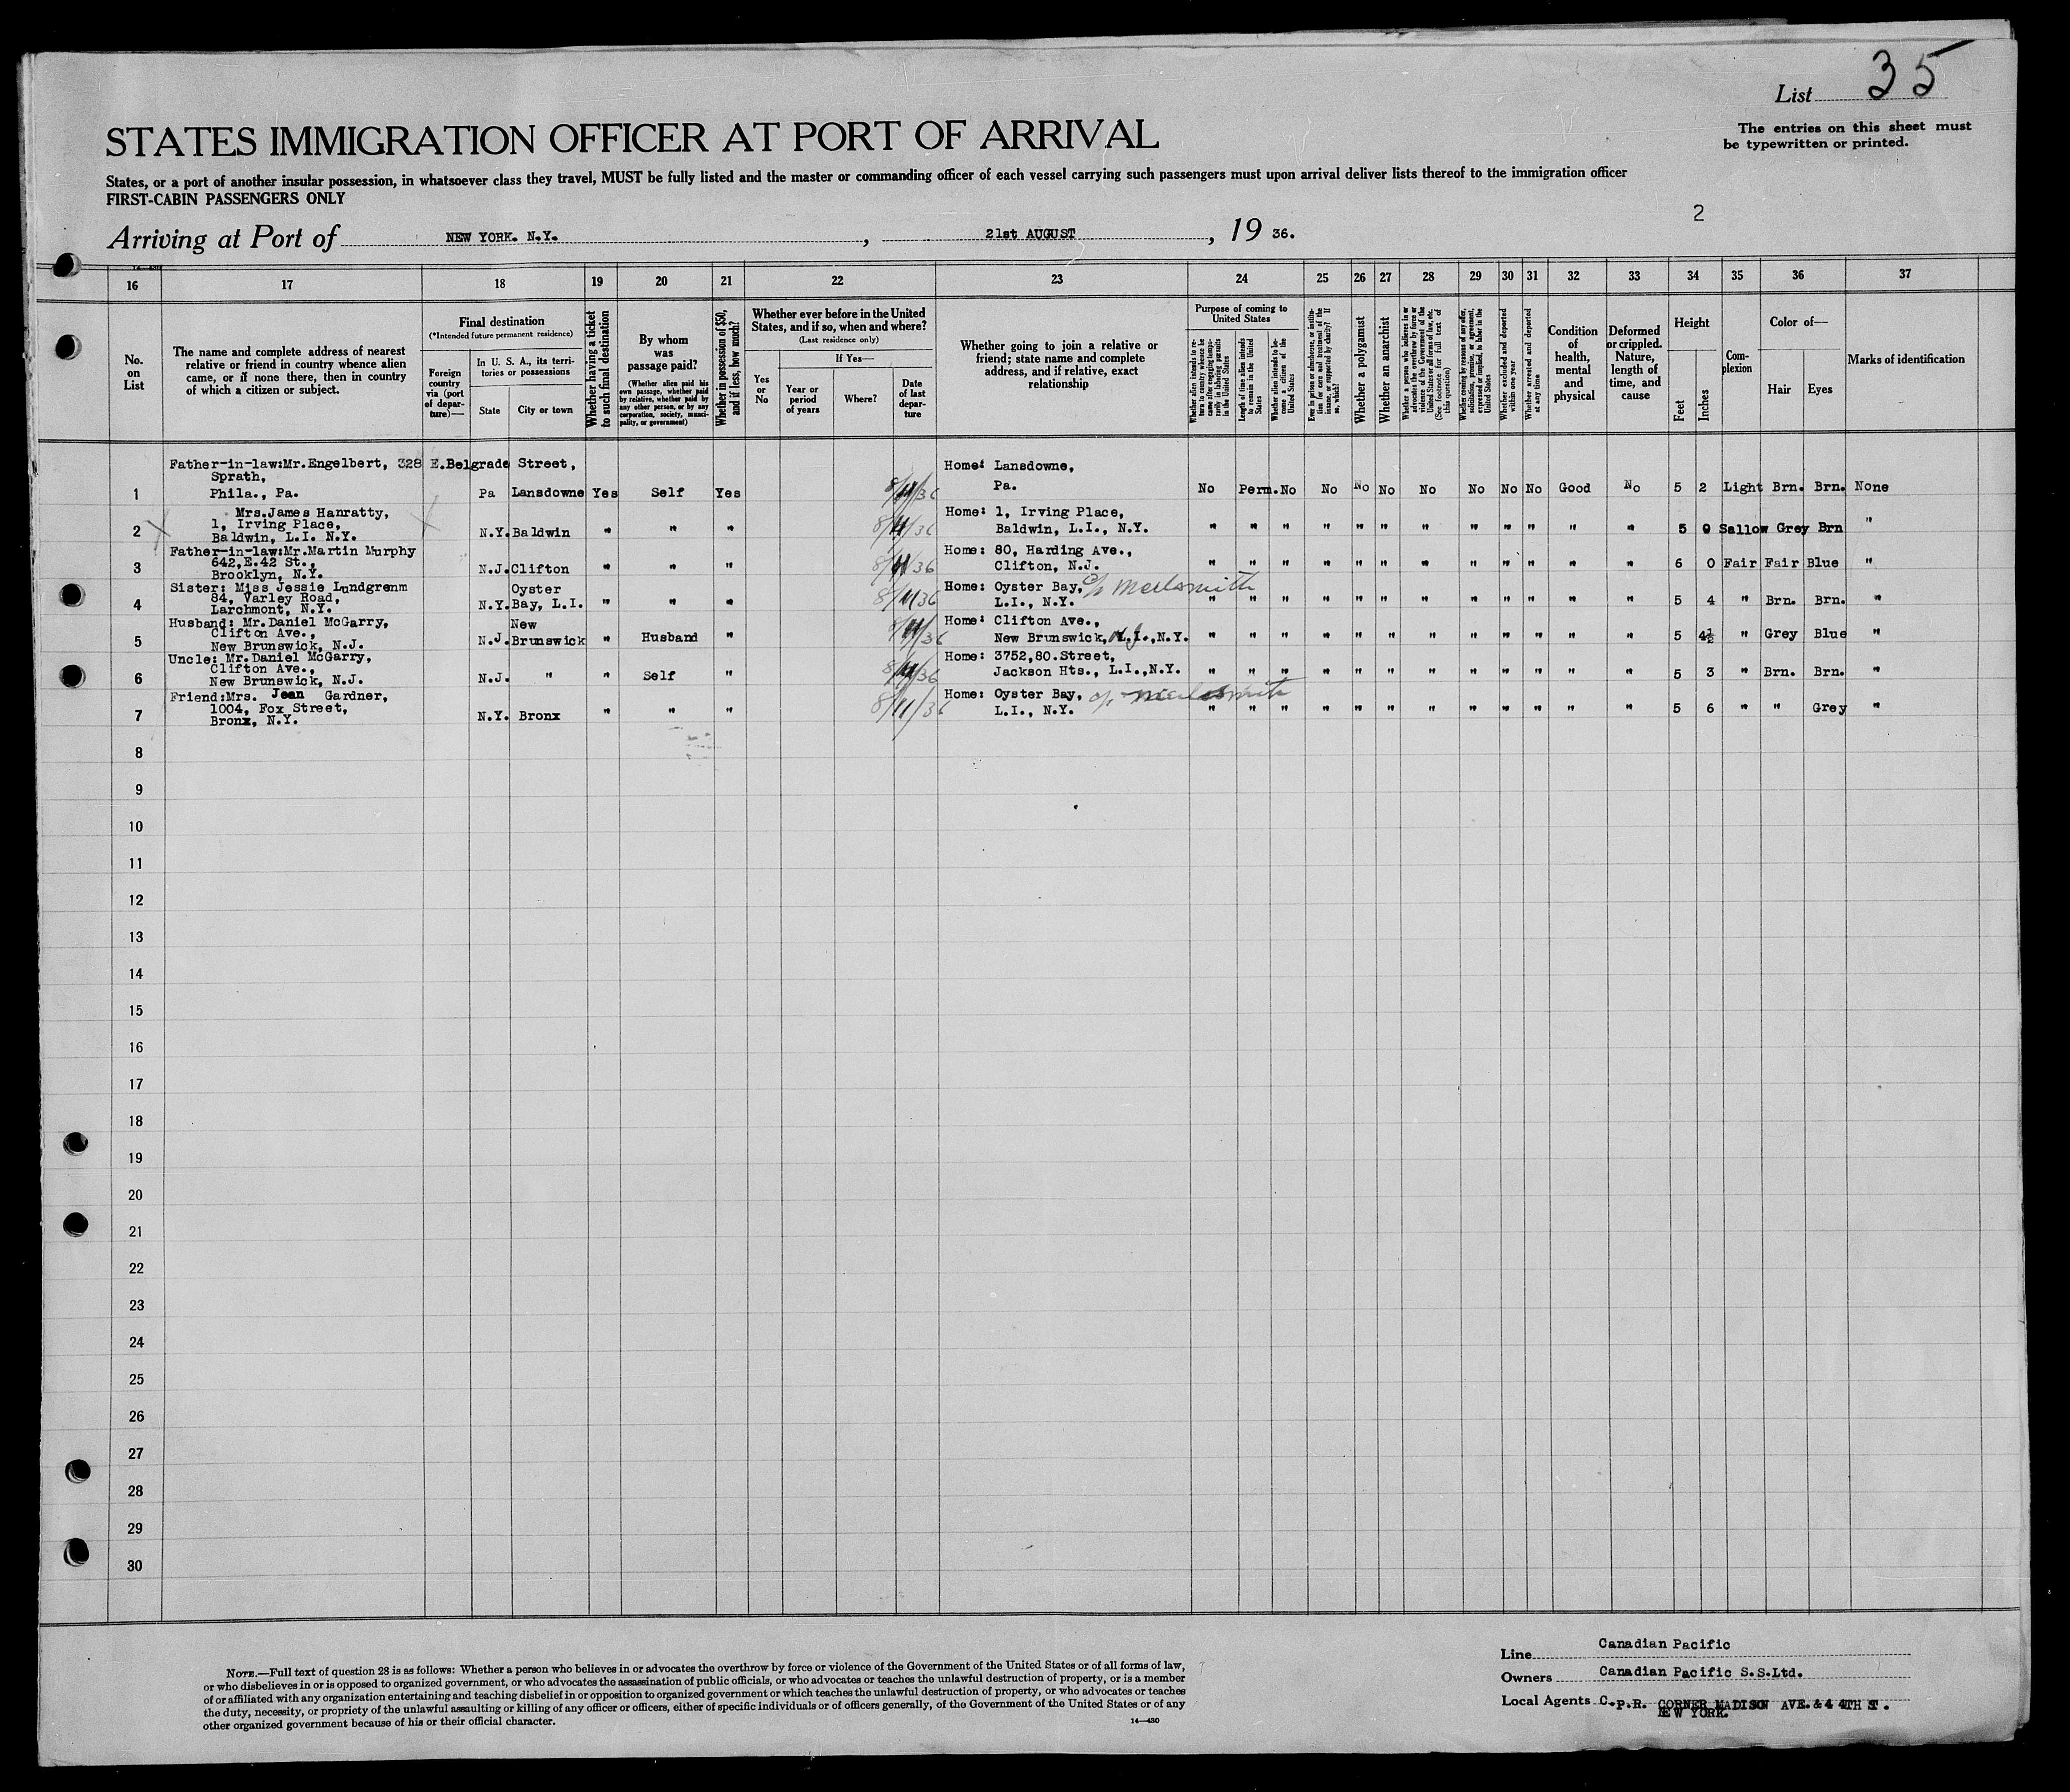 List 35
The entries on this sheet must
be typewritten or printed.
STATES IMMIGRATION OFFICER AT PORT OF ARRIVAL
States, or a port of another insular possession, in whatsoever class they travel, MUST be fully listed and the master or commanding officer of each vessel carrying such passengers must upon arrival deliver lists thereof to the immigration officer
FIRST-CABIN PASSENGERS ONLY
2
Arriving at Port of NEW YORK. N.Y. , 21st AUGUST , 19 36.
16 17 18 19 20 21 22 23 24 25 26 27 28 29 30 31 32 33 34 35 36 37
No. on List
The name and complete address of nearest
relative or friend in country whence alien
came, or if none there, then in country
of which a citizen or subject.
Final destination
(*Intended future permanent residence)
Foreign
country
via (port
of depar-
ture)—
In U. S. A., its terri-
tories or possessions
State
City or town
Whether having a ticket
to such final destination
By whom
was
passage paid?
(Whether alien paid his
own passage, whether paid
by relative, whether paid by
any other person, or by any
corporation, society, munici-
pality, or government)
Whether in possession of $50,
and if less, how much?
Whether ever before in the United
States, and if so, when and where?
(Last residence only)
Yes
or
No
If Yes—
Year or
period
of years
Where?
Date
of last
depar-
ture
Whether going to join a relative or
friend; state name and complete
address, and if relative, exact
relationship
Purpose of coming to
United States
Whether alien intends to re-
turn to country whence he
came after engaging tempo-
rarily in laboring pursuits
in the United States
Length of time alien intends
to remain in the United
States
Whether alien intends to be-
come a citizen of the
United States
Ever in prison or almshouse, or institu-
tion for care and treatment of the
insane, or supported by charity? If
so, which?
Whether a polygamist
Whether an anarchist
Whether a person who believes in or
advocates the overthrow by force or
violence of the Government of the
United States or all forms of law, etc.
(See footnote for full text of
this question)
Whether coming by reasons of any offer,
solicitation, promise, or agreement,
expressed or implied, to labor in the
United States
Whether excluded and deported
within one year
Whether arrested and deported
at any time
Condition
of
health,
mental
and
physical
Deformed
or crippled.
Nature,
length of
time, and
cause
Height
Feet
Inches
Com-
plexion
Color of—
Hair Eyes
Marks of identification
Father-in-law:Mr.Engelbert, 328 E.Belgrade Street, Home: Lansdowne,
Sprath,
1 Phila., Pa. Pa Lansdowne Yes Self Yes 8/11/36 Pa. No Perm. No No No No No No No No Good No 5 2 Light Brn. Brn. None
Mrs.James Hanratty, Home: 1, Irving Place,
2 1, Irving Place, N.Y. Baldwin " " " 8/11/36 Baldwin, L.I., N.Y. " " " " " " " " " " " " 5 9 Sallow Grey Brn "
Baldwin, L.I. N.Y.
Father-in-law:Mr.Martin Murphy Home: 80, Harding Ave.,
3 642,E.42 St., N.J. Clifton " " " 8/11/36 Clifton, N.J. " " " " " " " " " " " " 6 0 Fair Fair Blue "
Brooklyn, N.Y.
Sister: Miss Jessie Lundgrenm Oyster Home: Oyster Bay,
4 84, Varley Road, N.Y. Bay, L.I. " " " 8/11/36 L.I., N.Y. " " " " " " " " " " " " 5 4 " Brn. Brn. "
Larchmont, N.Y.
Husband: Mr.Daniel McGarry, New Home: Clifton Ave.,
5 Clifton Ave., N.J. Brunswick " Husband " 8/11/36 New Brunswick, L.I.,N.Y. N.J. " " " " " " " " " " " " 5 4½ " Grey Blue "
New Brunswick, N.J.
Uncle: Mr.Daniel McGarry, Home: 3752,80.Street,
6 Clifton Ave., N.J. " " Self " 8/11/36 Jackson Hts., L.I.,N.Y. " " " " " " " " " " " " 5 3 " Brn. Brn. "
New Brunswick, N.J.
Friend:Mrs. Jean Gardner, Home: Oyster Bay,
7 1004, Fox Street, N.Y. Bronx " " " 8/11/36 L.I., N.Y. " " " " " " " " " " " " 5 6 " " Grey "
Bronx, N.Y.
8
9
10
11
12
13
14
15
16
17
18
19
20
21
22
23
24
25
26
27
28
29
30
NOTE.—Full text of question 28 is as follows: Whether a person who believes in or advocates the overthrow by force or violence of the Government of the United States or of all forms of law,
or who disbelieves in or is opposed to organized government, or who advocates the assassination of public officials, or who advocates or teaches the unlawful destruction of property, or is a member
of or affiliated with any organization entertaining and teaching disbelief in or opposition to organized government or which teaches the unlawful destruction of property, or who advocates or teaches
the duty, necessity, or propriety of the unlawful assaulting or killing of any officer or officers, either of specific individuals or of officers generally, of the Government of the United States or of any
other organized government because of his or their official character.
14—430
Line Canadian Pacific
Owners Canadian Pacific S.S.Ltd.
Local Agents C.P.R. CORNER MADISON AVE.&44TH ST.
NEW YORK.